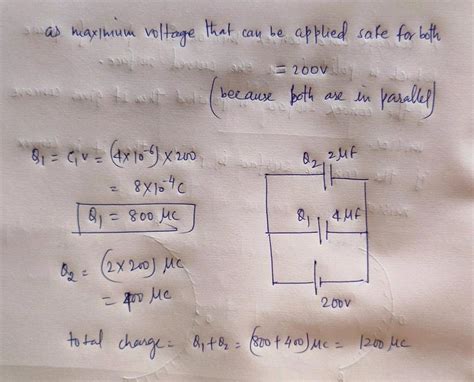 as maximum voltage that can be applied safe for both
= 200V
(because both are in parallel)
Q₁ = C₁V = (4×10⁻⁶) × 200
= 8×10⁻⁴C
Q₁ = 800 μC
Q₂ 2μF
Q₁ 4μF
200V
Q₂ = (2×200) μC
= 400 μC
total charge = Q₁+Q₂ = (800+400) μC = 1200 μC